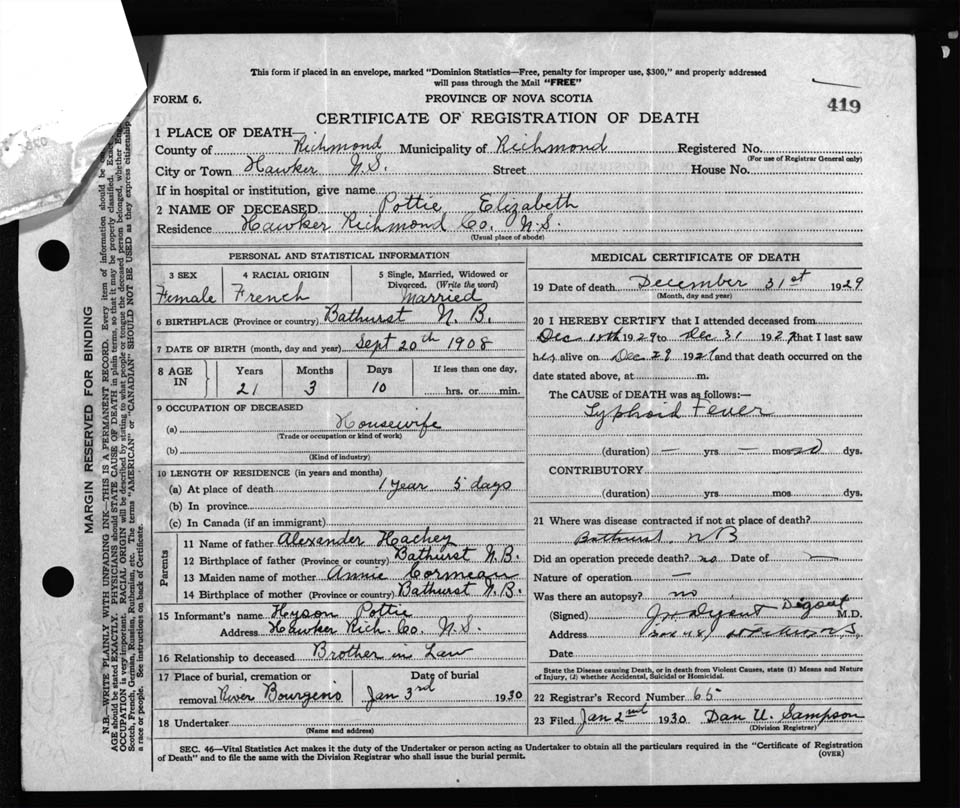 This form if placed in an envelope, marked "Dominion Statistics—Free, penalty for improper use, $300," and properly addressed
will pass through the Mail "FREE"
FORM 6.
PROVINCE OF NOVA SCOTIA
419
CERTIFICATE OF REGISTRATION OF DEATH
1 PLACE OF DEATH—
County of Richmond Municipality of Richmond Registered No.
(For use of Registrar General only)
City or Town Hawker N.S. Street House No.
If in hospital or institution, give name
2 NAME OF DECEASED Pottie Elizabeth
Residence Hawker Richmond Co. N.S.
(Usual place of abode)
PERSONAL AND STATISTICAL INFORMATION
3 SEX 4 RACIAL ORIGIN 5 Single, Married, Widowed or
Divorced. (Write the word)
Female French Married
6 BIRTHPLACE (Province or country) Bathurst N.B.
7 DATE OF BIRTH (month, day and year) Sept 20th 1908
8 AGE IN Years Months Days If less than one day,
21 3 10 hrs. or min.
9 OCCUPATION OF DECEASED
(a) Housewife
(Trade or occupation or kind of work)
(b)
(Kind of industry)
10 LENGTH OF RESIDENCE (in years and months)
(a) At place of death 1 year 5 days
(b) In province
(c) In Canada (if an immigrant)
Parents
11 Name of father Alexander Hachey
12 Birthplace of father (Province or country) Bathurst N.B.
13 Maiden name of mother Annie Cormeau
14 Birthplace of mother (Province or country) Bathurst N.B.
15 Informant's name Hyson Pottie
Address Hawker Rich. Co. N.S.
16 Relationship to deceased Brother in Law
17 Place of burial, cremation or Date of burial
removal River Bourgeois Jan 3rd 1930
18 Undertaker
(Name and address)
MEDICAL CERTIFICATE OF DEATH
19 Date of death December 31st 1929
(Month, day and year)
20 I HEREBY CERTIFY that I attended deceased from
Dec 1929 to Dec 31 1929 that I last saw
her alive on Dec 29 1929 and that death occurred on the
date stated above, at m.
The CAUSE of DEATH was as follows:—
Typhoid Fever
(duration) — yrs — mos 20 dys.
CONTRIBUTORY
(duration) yrs. mos. dys.
21 Where was disease contracted if not at place of death?
Bathurst NB
Did an operation precede death? no Date of —
Nature of operation —
Was there an autopsy? no
(Signed) M.D.
Address
Date
State the Disease causing Death, or in death from Violent Causes, state (1) Means and Nature
of Injury, (2) whether Accidental, Suicidal or Homicidal.
22 Registrar's Record Number 65
23 Filed Jan 2nd 1930 Dan U. Sampson
(Division Registrar)
SEC. 46—Vital Statistics Act makes it the duty of the Undertaker or person acting as Undertaker to obtain all the particulars required in the "Certificate of Registration
of Death" and to file the same with the Division Registrar who shall issue the burial permit.
(OVER)
MARGIN RESERVED FOR BINDING
N.B.—WRITE PLAINLY WITH UNFADING INK—THIS IS A PERMANENT RECORD. Every item of information should be
AGE should be stated EXACTLY. PHYSICIANS should STATE CAUSE OF DEATH in plain terms, so that it may be properly classified. Exact
OCCUPATION is very important. RACIAL ORIGIN will be described by stating to what people or tongue the deceased person belonged, whether
Scotch, French, German, Russian, Ruthenian, etc. The terms "AMERICAN" or "CANADIAN" SHOULD NOT BE USED as they express citizenship
a race or people. See instructions on back of Certificate.